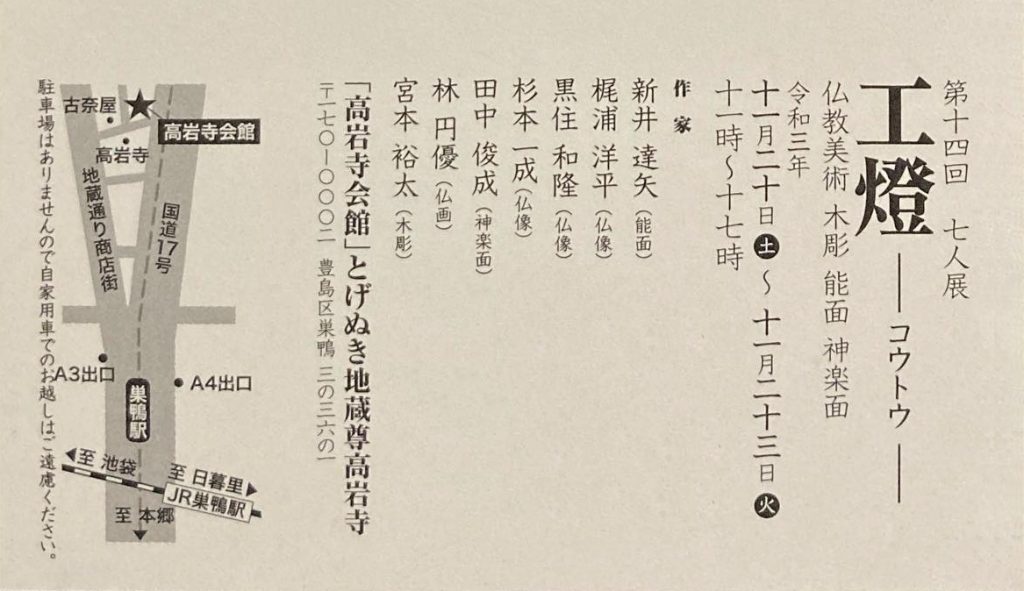 第十四回　七人展
工燈 ― コウトウ ―
仏教美術 木彫 能面 神楽面
令和三年
十一月二十日土～十一月二十三日火
十一時～十七時
作家
新井 達矢（能面）
梶浦 洋平（仏像）
黒住 和隆（仏像）
杉本 一成（仏像）
田中 俊成（神楽面）
林 円優（仏画）
宮本 裕太（木彫）
「高岩寺会館」とげぬき地蔵尊高岩寺
〒一七〇ー〇〇〇二 豊島区巣鴨 三の三六の一
高岩寺会館
古奈屋
高岩寺
国道17号
地蔵通り商店街
A3出口
A4出口
巣鴨駅
至 池袋
至 日暮里
JR巣鴨駅
至 本郷
駐車場はありませんので自家用車でのお越しはご遠慮ください。